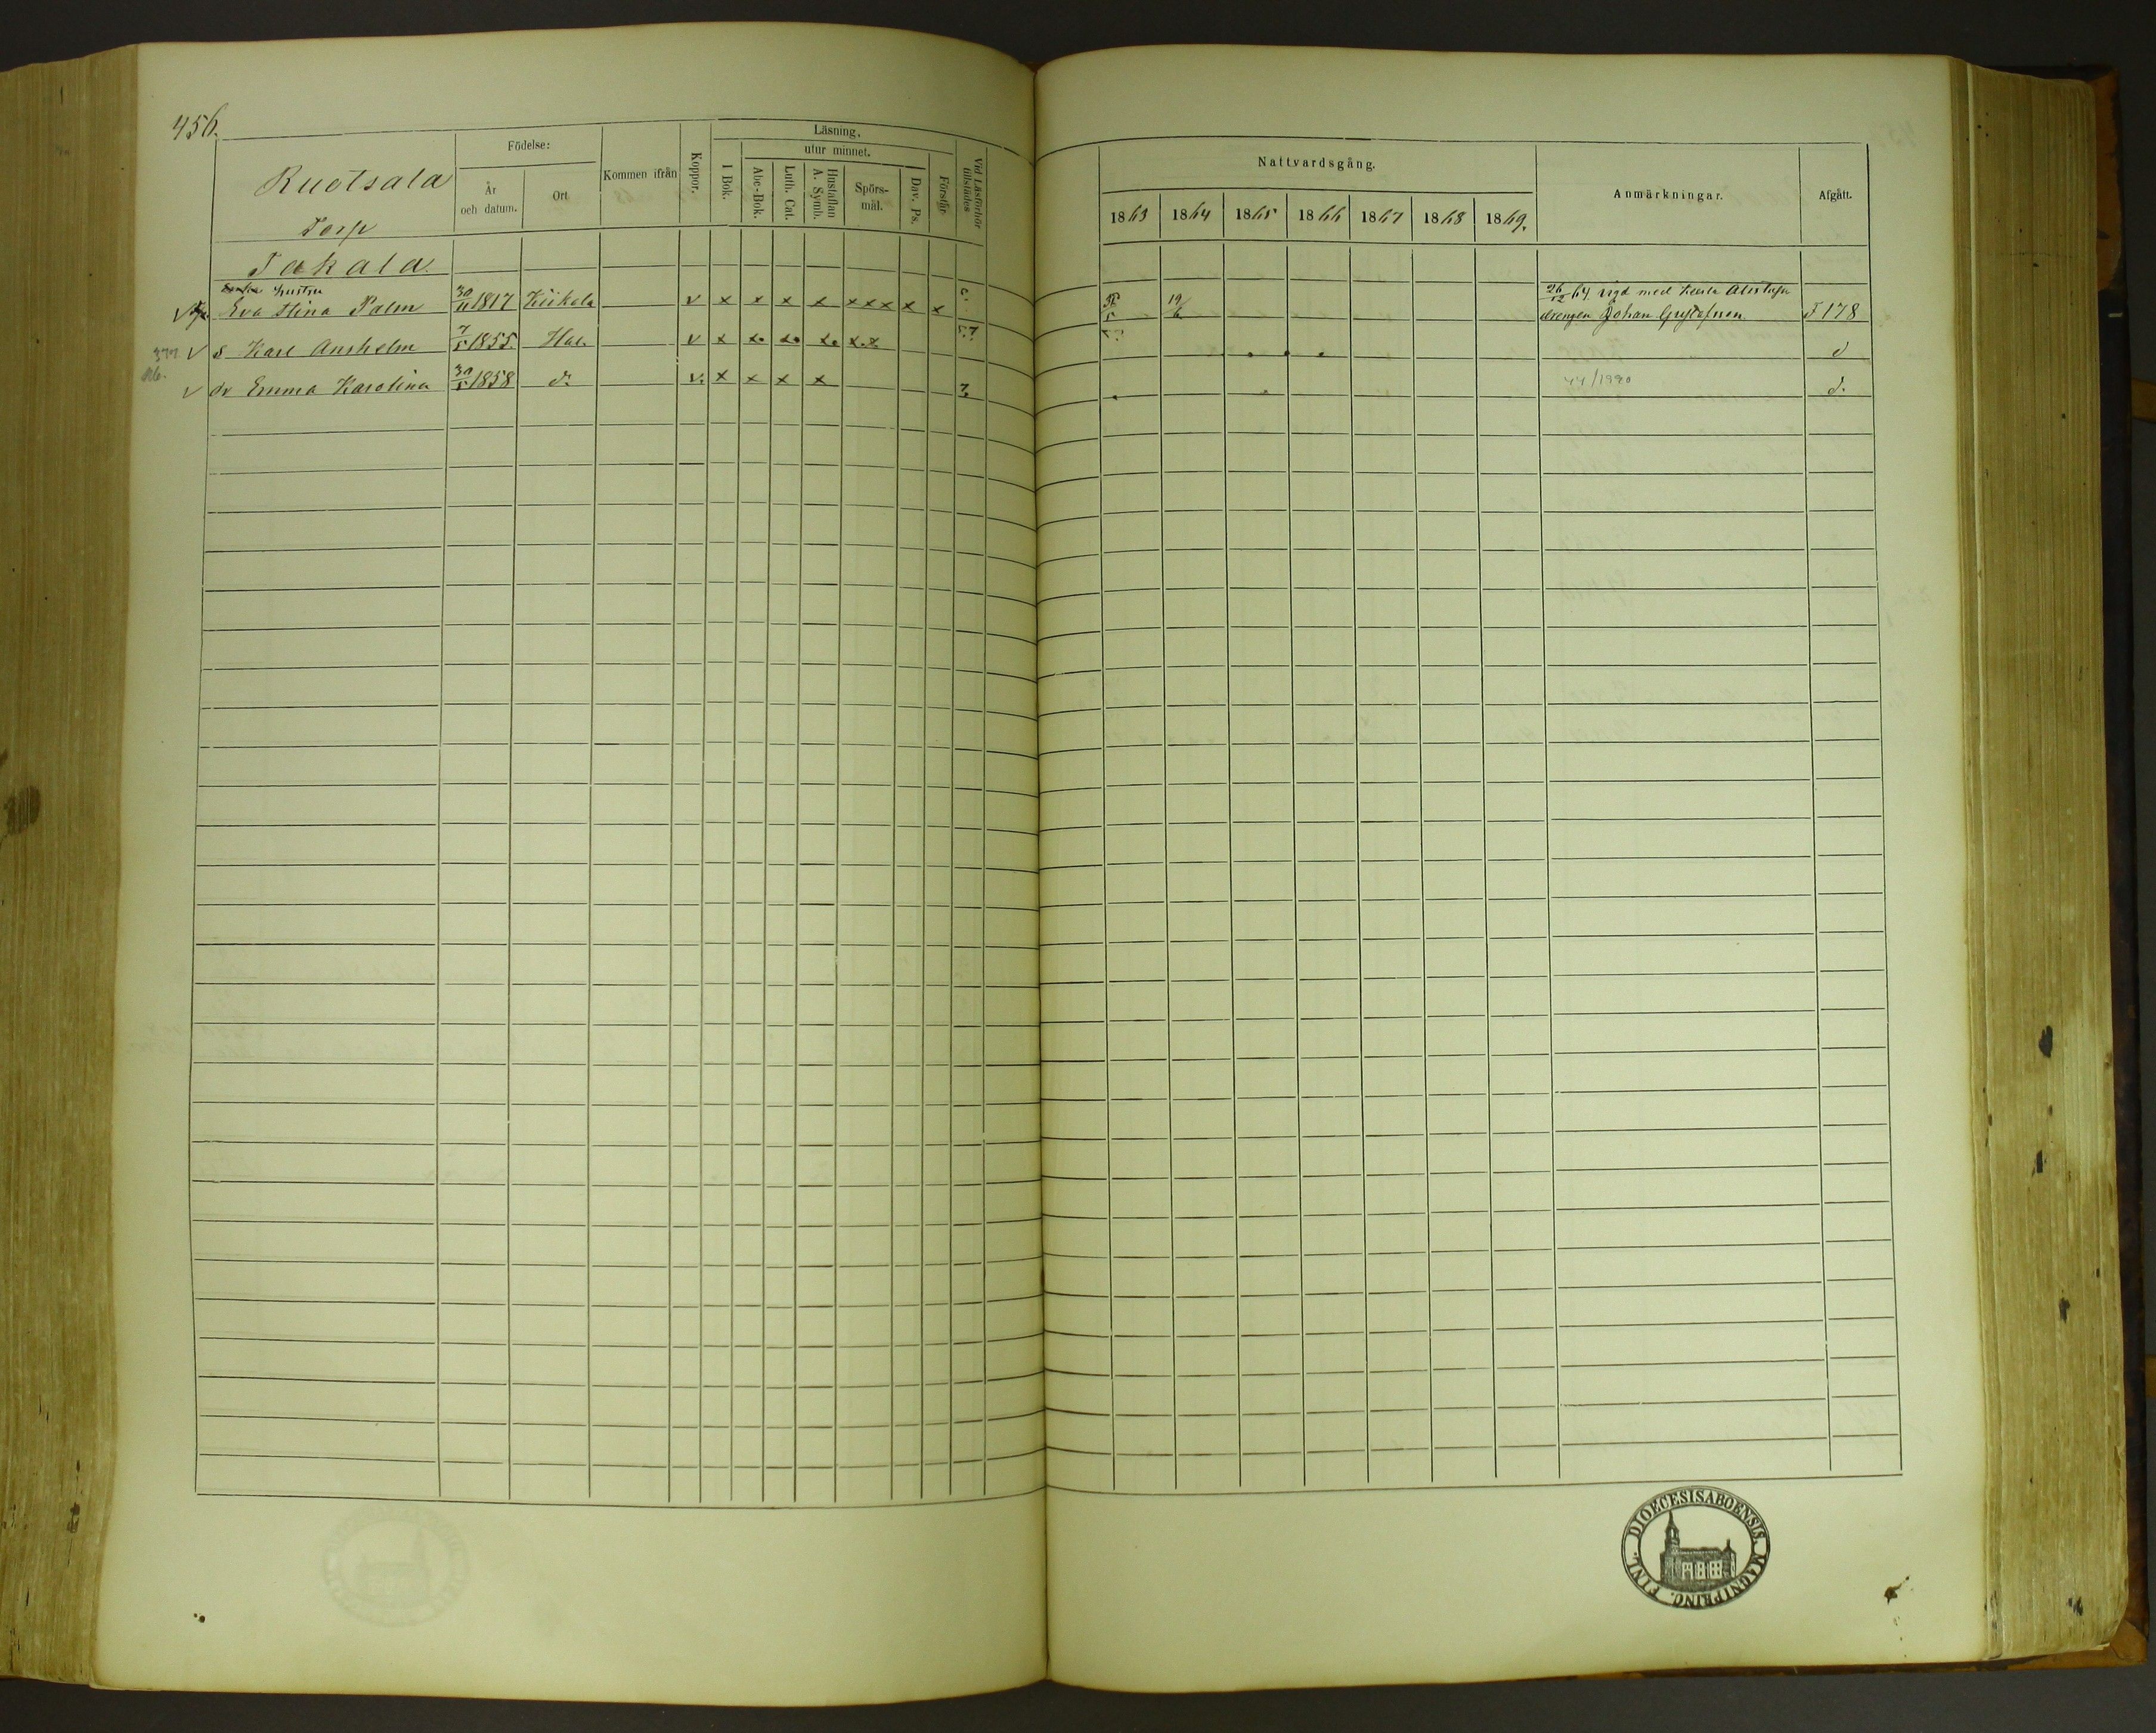 456.
Ruotsala
Torp
Födelse:
År och datum.
Ort
Kommen ifrån
Koppor.
Läsning.
I Bok.
utur minnet.
Abc-Bok.
Luth. Cat.
Hustaflan A. Symb.
Spörs-mål.
Dav. Ps.
Förstår
Vid Läsförhör tillstädes
Nattvardsgång.
1863 1864 1865 1866 1867 1868 1869.
Anmärkningar.
Afgått.
Takala.
hustru
Eva Stina Palm 30/11 1817 Kiikala v x x x x x x x x x 19/6 26/12 64 vigd med
drengen Johan Gustafsson F 178
s Karl Anshelm 7/5 1855. Hal. v x x. x. x. x.x d
dr Emma Karolina 30/5 1858 d:o v. x x x x 7. 44/1990 d.
DIOECESIS ABOENSIS MAGNI PRINC. FINL.